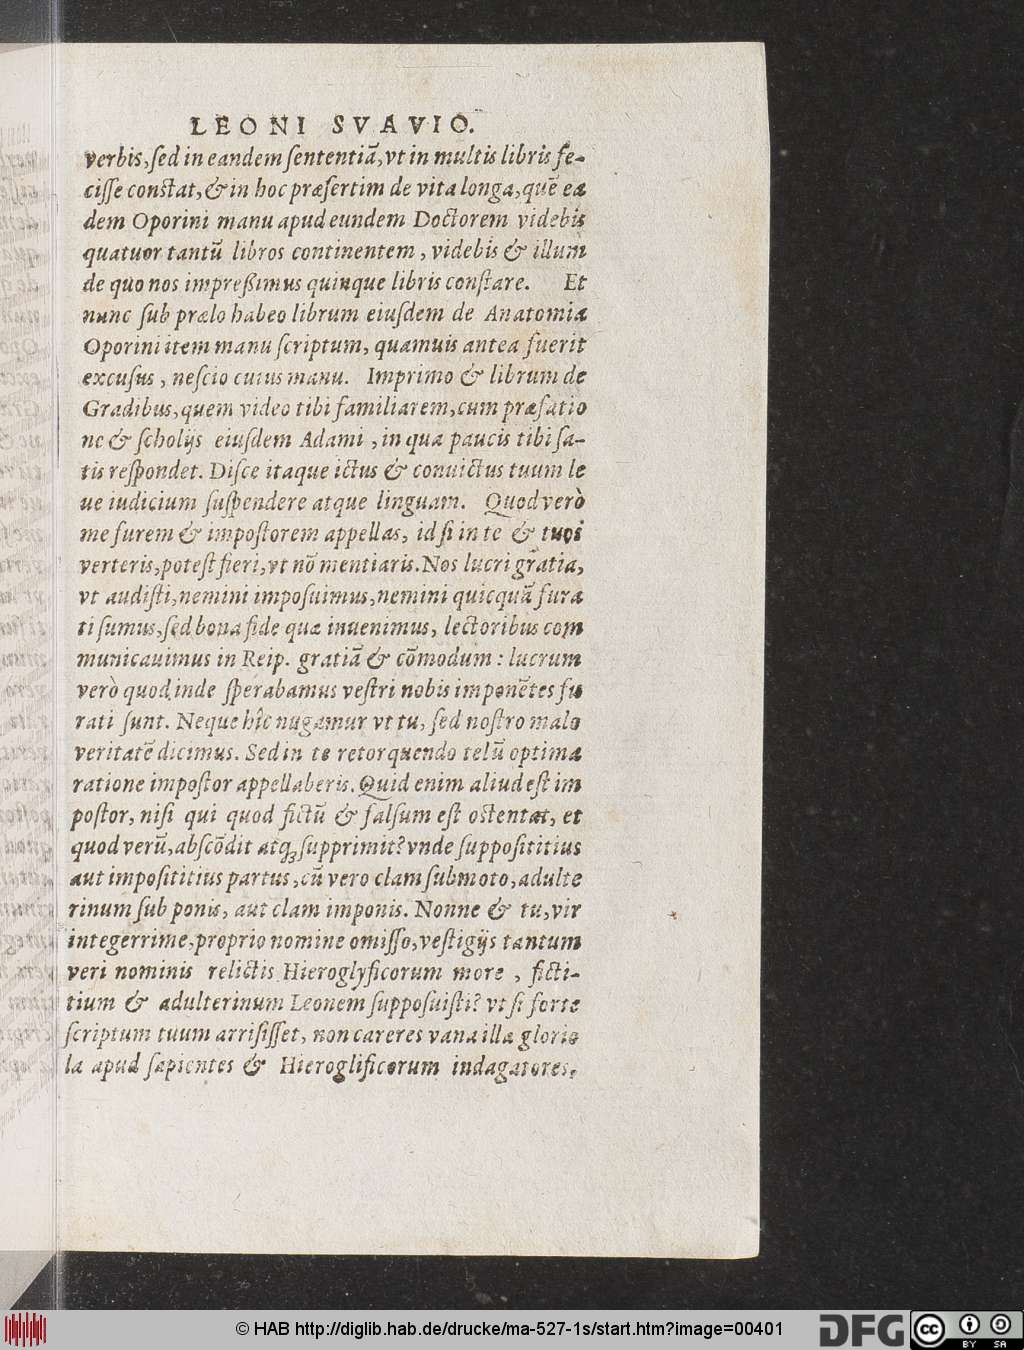 LEONI SVAVIO.
verbis, ſed in eandem ſententiã, vt in multis libris fe-
ciſſe conſtat, & in hoc præſertim de vita longa, quẽ ea
dem Oporini manu apud eundem Doctorem videbis
quatuor tantũ libros continentem, videbis & illum
de quo nos impreßimus quinque libris conſtare. Et
nunc ſub prælo habeo librum eiuſdem de Anatomia
Oporini item manu ſcriptum, quamuis antea fuerit
excuſus, neſcio cuius manu. Imprimo & librum de
Gradibus, quem video tibi familiarem, cum præfatio
ne & ſcholijs eiuſdem Adami, in qua paucis tibi ſa-
tis reſpondet. Diſce itaque ictus & conuictus tuum le
ue iudicium ſuſpendere atque linguam. Quod verò
me furem & impoſtorem appellas, id ſi in te & tuos
verteris, poteſt fieri, vt nõ mentiaris. Nos lucri gratia,
vt audiſti, nemini impoſuimus, nemini quicquã fura
ti ſumus, ſed bona fide quæ inuenimus, lectoribus com
municauimus in Reip. gratiã & cõmodum: lucrum
verò quod inde ſperabamus veſtri nobis imponẽtes fu
rati ſunt. Neque hîc nugamur vt tu, ſed noſtro malo
veritatẽ dicimus. Sed in te retorquendo telũ optima
ratione impoſtor appellaberis. Quid enim aliud eſt im
poſtor, niſi qui quod fictũ & falſum eſt oſtentat, et
quod verũ, abſcõdit atq; ſupprimit? vnde ſuppoſititius
aut impoſititius partus, cũ vero clam ſubmoto, adulte
rinum ſub ponis, aut clam imponis. Nonne & tu, vir
integerrime, proprio nomine omiſſo, veſtigijs tantum
veri nominis relictis Hieroglyficorum more, ficti-
tium & adulterinum Leonem ſuppoſuiſti? vt ſi forte
ſcriptum tuum arriſiſſet, non careres vana illa glorio
la apud ſapientes & Hieroglificorum indagatores,
© HAB http://diglib.hab.de/drucke/ma-527-1s/start.htm?image=00401
DFG
cc
BY SA